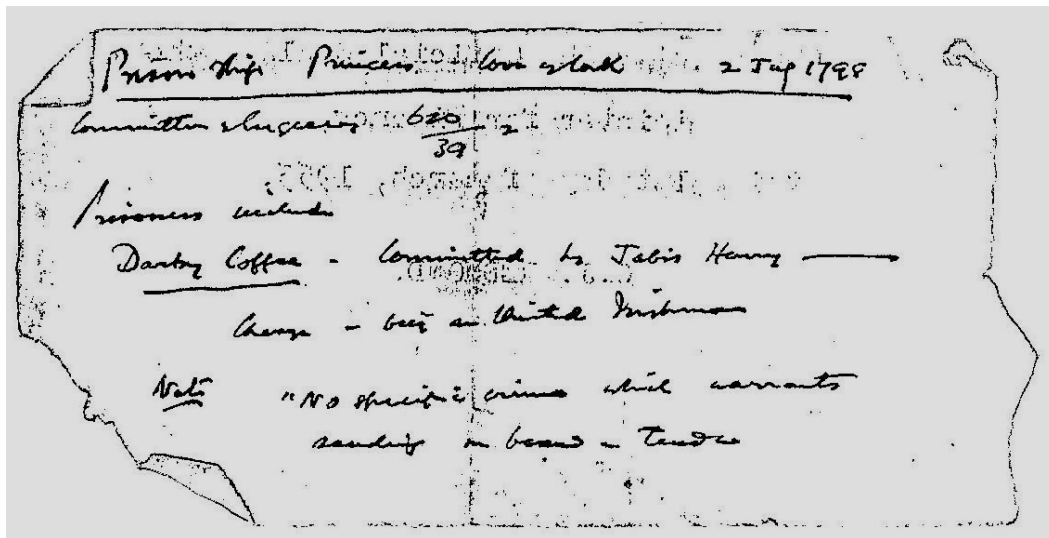 Prison Ship Princess Cove of Cork 2 Jug 1798
Committee
620
39
Prisoners include
Darby Coffee - Committed by Jabis Henry
Charge - being an United Irishman
Note "No specific crime which warrants
sending on board a Tender